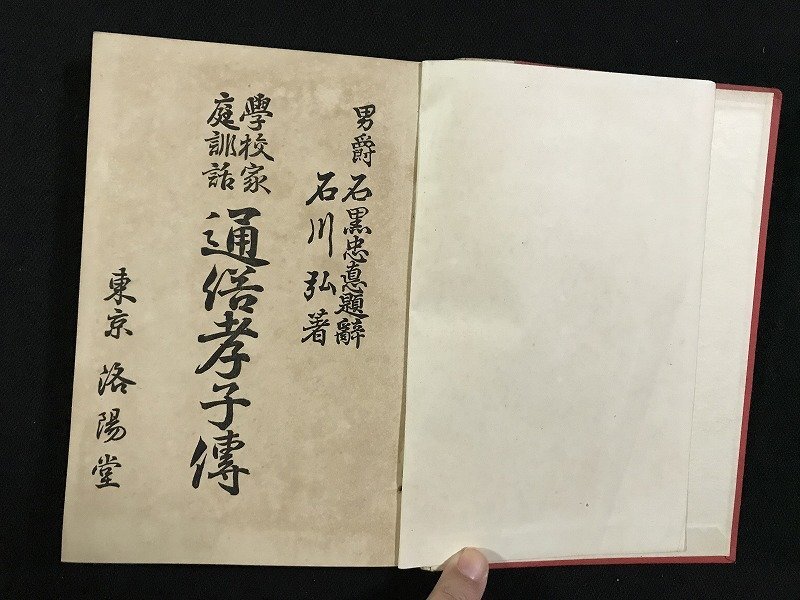 男爵 石黒忠悳題辭
石川弘著
學校家
庭訓話
通俗孝子傳
東京 洛陽堂